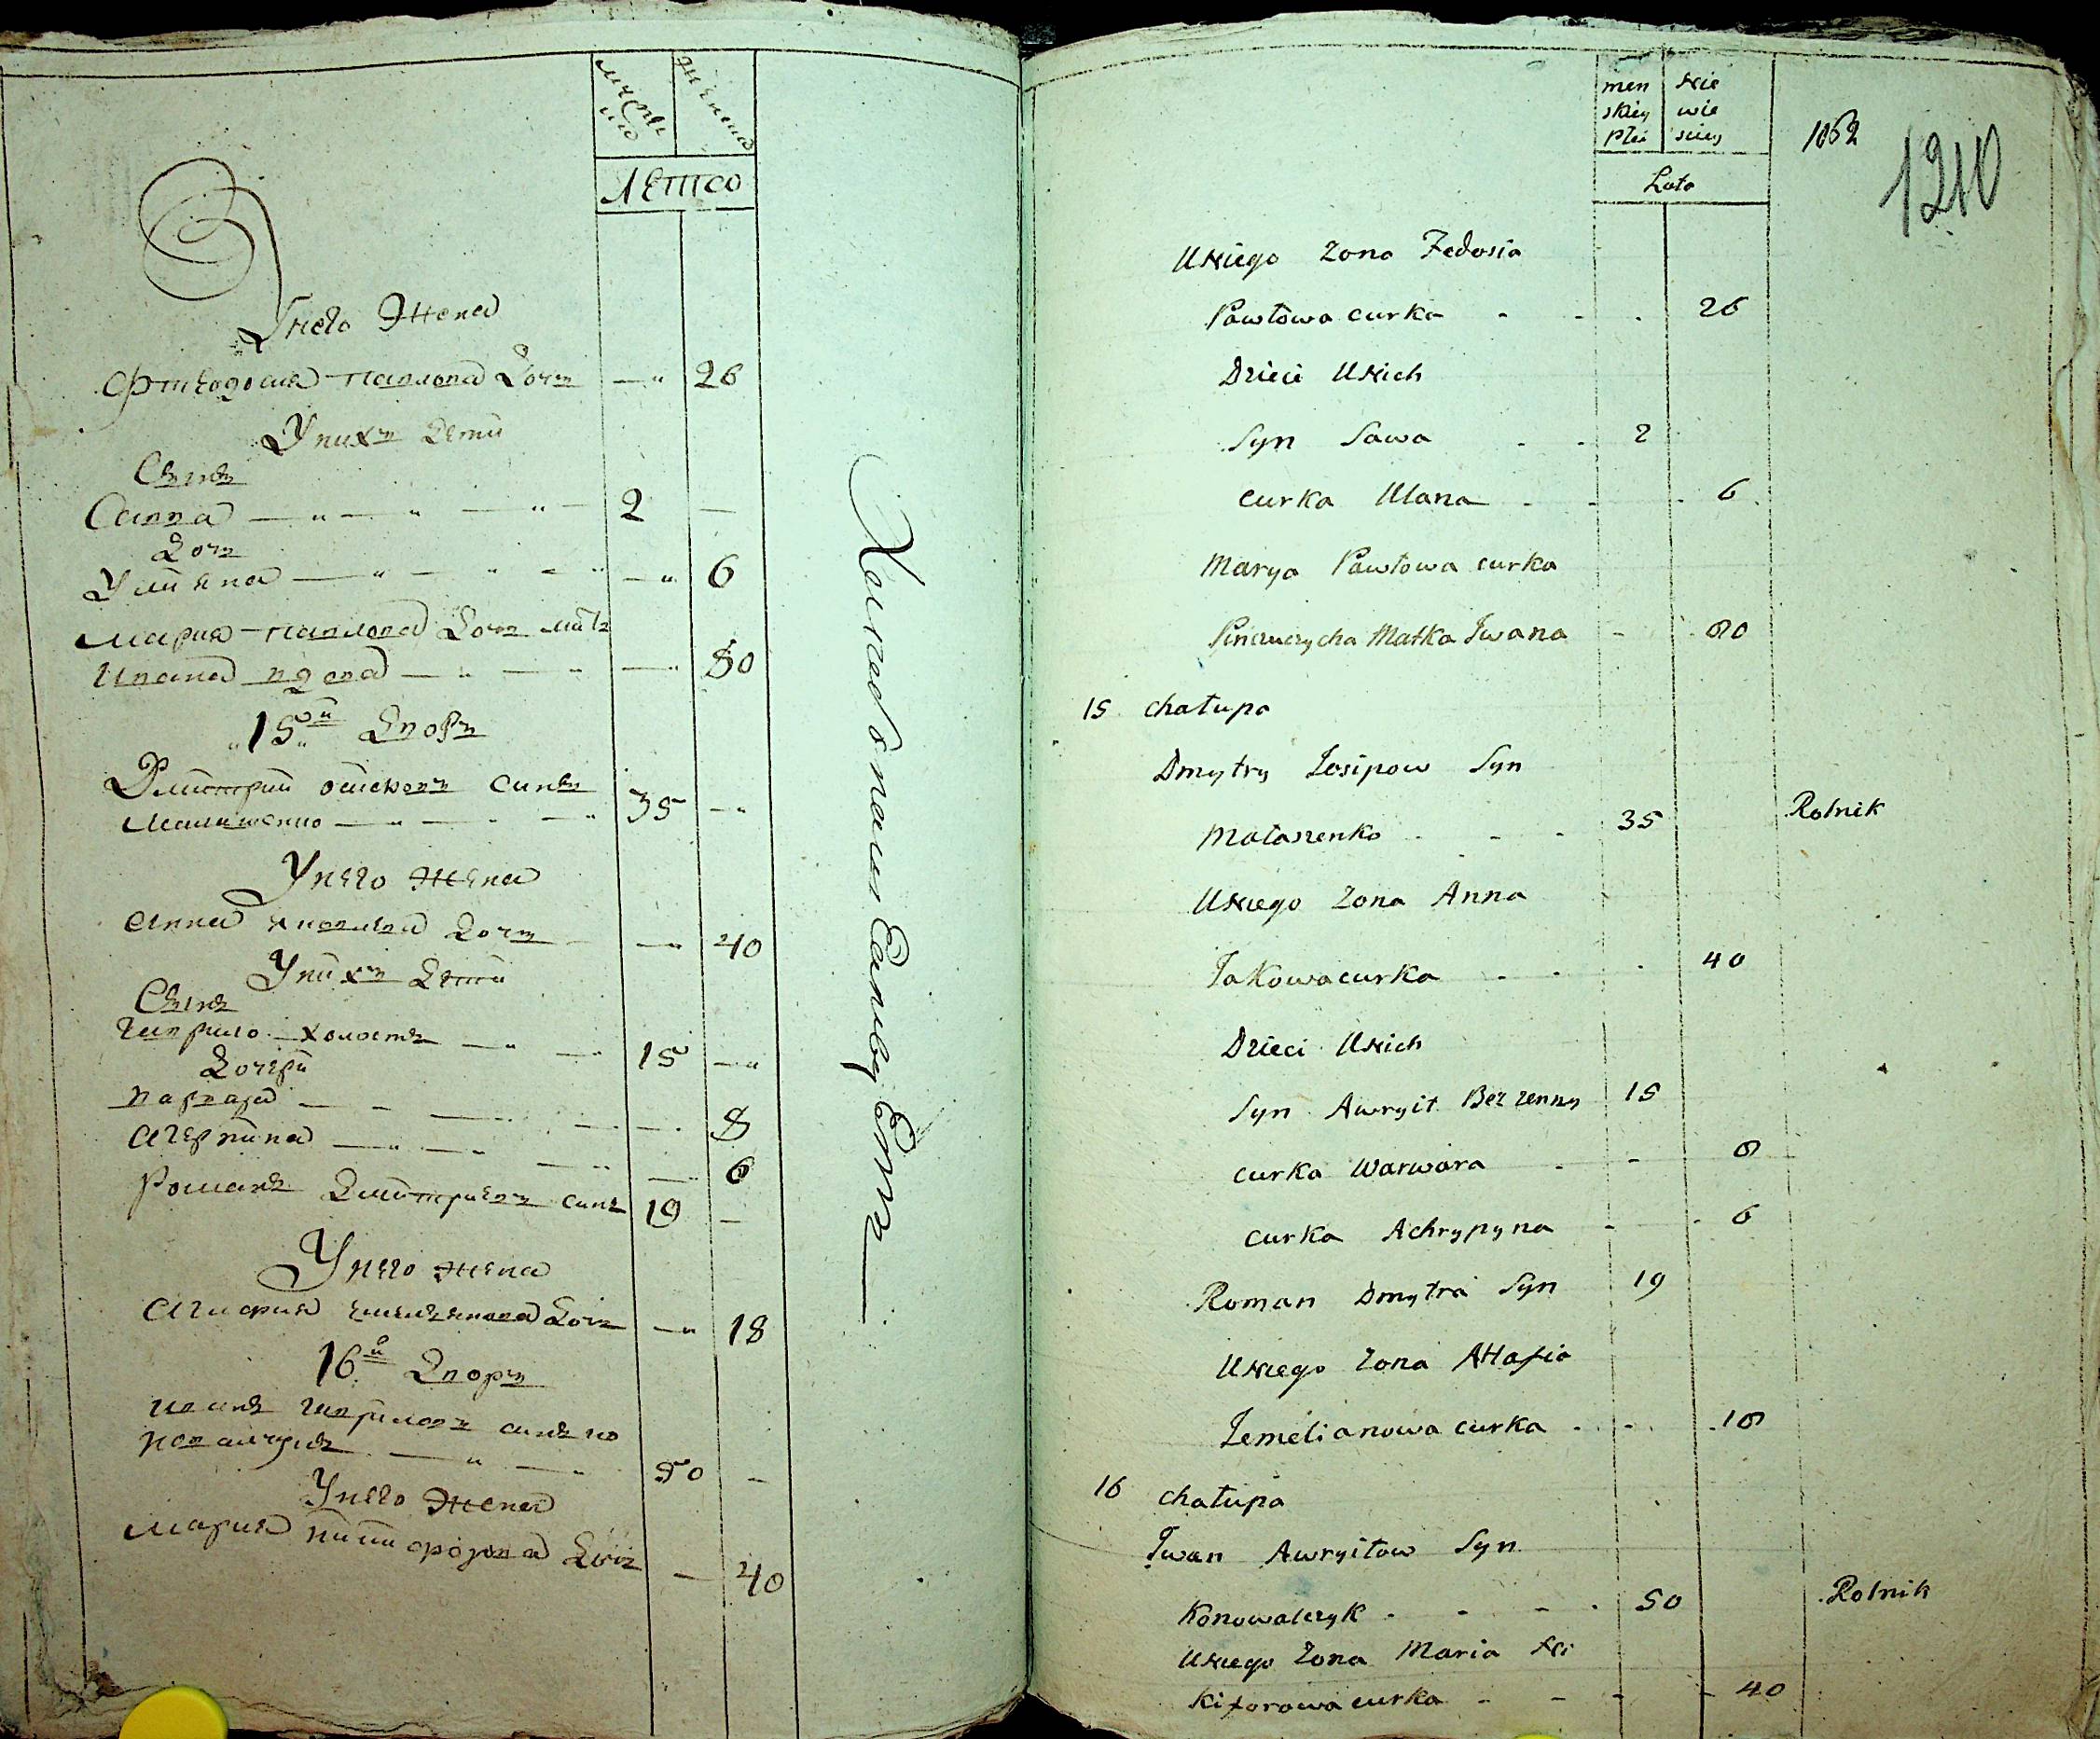 мужеска
женска
лета
У него жена
Фтеодосия павлова доч 26
У них дети
Сынъ
Савва 2
Доч
Улияна 6
Мария павлова доч мать
Ивана вдова 80
15ой Дворъ
Дмитрий осиповъ синъ
Малашенко 35
У него жена
Анна яковлева доч 40
У них дети
Сынъ
Гаврило холостъ 15
Дочери
варвара 8
Агерпина 6
Романъ Дмитриевъ синъ 19
У него жена
Агафия емилянова доч 18
16й Дворъ
Иванъ Гавриловъ синъ ко
новалчукъ 50
У него жена
Мария никифорова доч 40
men
skiey
płci
Nie
wie
sciey
Lata
1052
1210
U Niego Zona Fedosia
Pawłowa curka 26
Dzieci U Nich
Syn Sawa 2
curka Ulana 6
Marya Pawłowa curka
Matka Iwana 80
15 chałupa
Dmytry Josipow Syn
Małaszenko 35 Rolnik
U Niego Zona Anna
Jakowa curka 40
Dzieci U Nich
Syn Awryit Bezzenny 15
curka Warwara 8
curka Achrypyna 6
Roman Dmytra Syn 19
U Niego Zona AHafia
Jemelianowa curka 18
16 chałupa
Iwan Awryitow Syn
Konowalczyk 50 Rolnik
U Niego Zona Maria Ni
Kiforowa curka 40